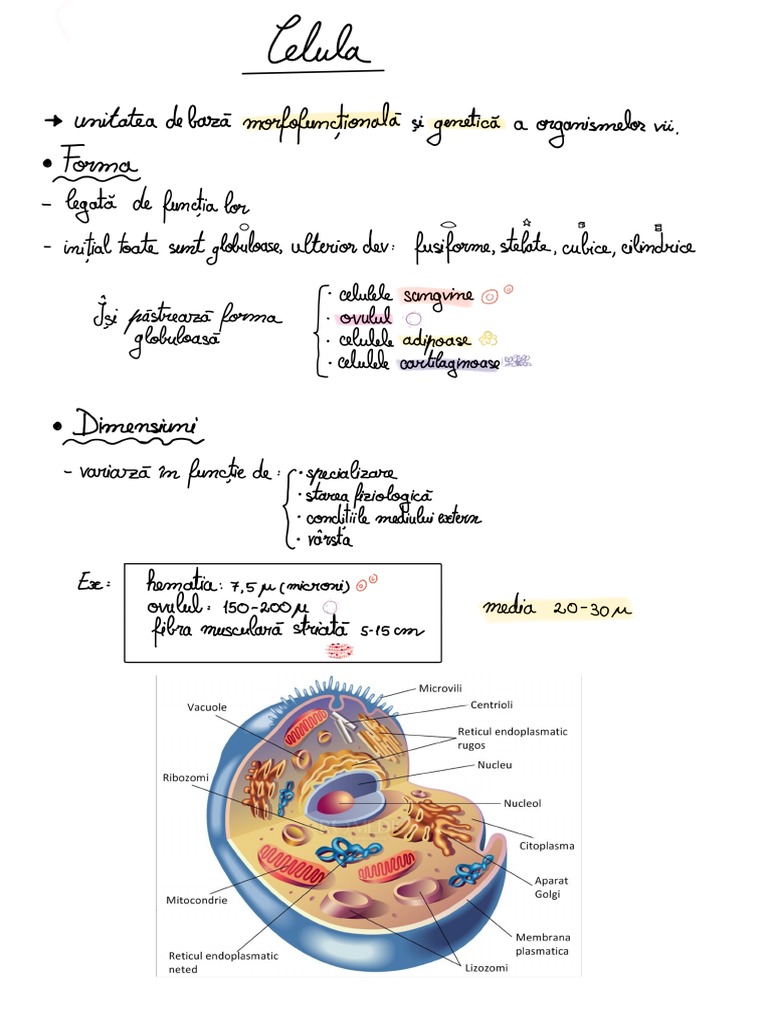 Celula
→ unitatea de bază morfofuncțională și genetică a organismelor vii.
• Forma
- legată de funcția lor
- inițial toate sunt globuloase, ulterior dev: fusiforme, stelate, cubice, cilindrice
Își păstrează forma
globuloasă
· celulele sangvine
· ovulul
· celulele adipoase
· celulele cartilaginoase
• Dimensiuni
- variază în funcție de:
· specializare
· starea fiziologică
· condițiile mediului extern
· vârsta
Ex:
hematia: 7,5 μ (microni)
ovulul: 150-200 μ
fibra musculară striată 5-15 cm
media 20-30 μ
Microvili
Vacuole
Centrioli
Reticul endoplasmatic
rugos
Nucleu
Ribozomi
Nucleol
Citoplasma
Aparat
Golgi
Mitocondrie
Membrana
plasmatica
Reticul endoplasmatic
neted
Lizozomi